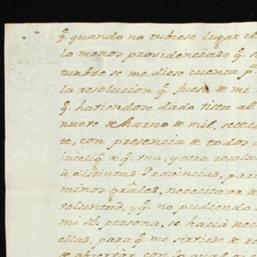 q̃. quando no tubiese lugar el
lo menos providenciado q̃. s
tunbre se me diese cuenta p.
la resolucion q̃. fuese de mi
q̃. haviendose dado vista al
nueve de Marzo de mil, setec
te, con presencia de todos
intelig.ª q̃. ma, y otra resolu
à distintas Provincias, par
minos grãles, necesitava de
voluntad, y q̃. no pudiendo
mi Rl. persona, se hacia nec
cias, para q̃. me sirviese de re